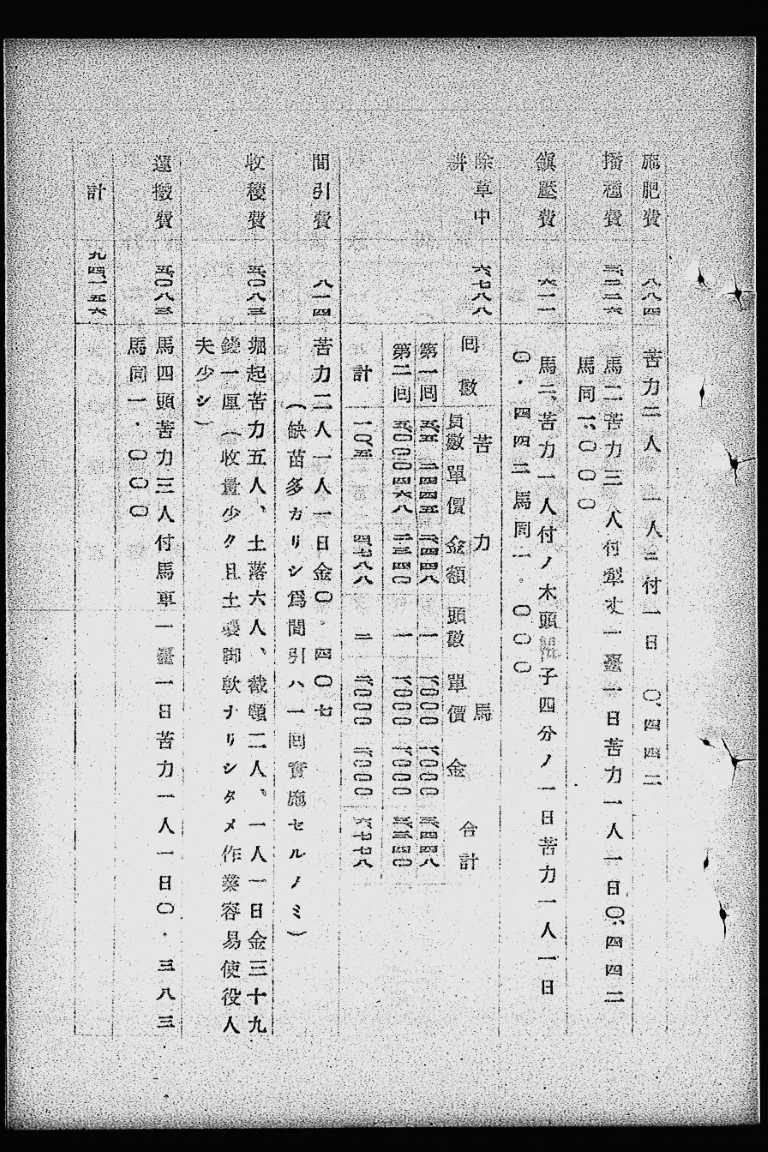 施肥費 八八四 苦力二人 一人ニ付一日 〇.四四二
播種費 三.二二六 馬二苦力三人付犁丈一臺一日苦力一人一日〇.四四二
馬同一.〇〇〇
鎭壓費 六一一 馬二、苦力一人付ノ木頭 子四分ノ一日苦力一人一日
〇.四四二馬同一.〇〇〇
除草中耕 六七八八
回數 苦力 馬 合計
員數 單價 金額 頭數 單價 金
第一回 五.五 二.四四八 一 一.〇〇〇 一.〇〇〇 三.四四八
第二回 五.〇 〇.四六八 二.三四〇 一 一.〇〇〇 一.〇〇〇 三.三四〇
計 一〇.五 四.七八八 二
間引費 八一四 苦力二人一人一日金〇.四〇七
(缺苗多カリシ爲間引ハ一回實施セルノミ)
收穫費 五.〇八三 堀起苦力五人、土落六人、截頭二人、一人一日金三十九
錢一厘(收量少ク且土壤脚軟ナリシタメ作業容易使役人
夫少シ)
運搬費 五.〇八三 馬四頭苦力三人付馬車一臺一日苦力一人一日〇.三八三
馬同一.〇〇〇
計 九四.一五六